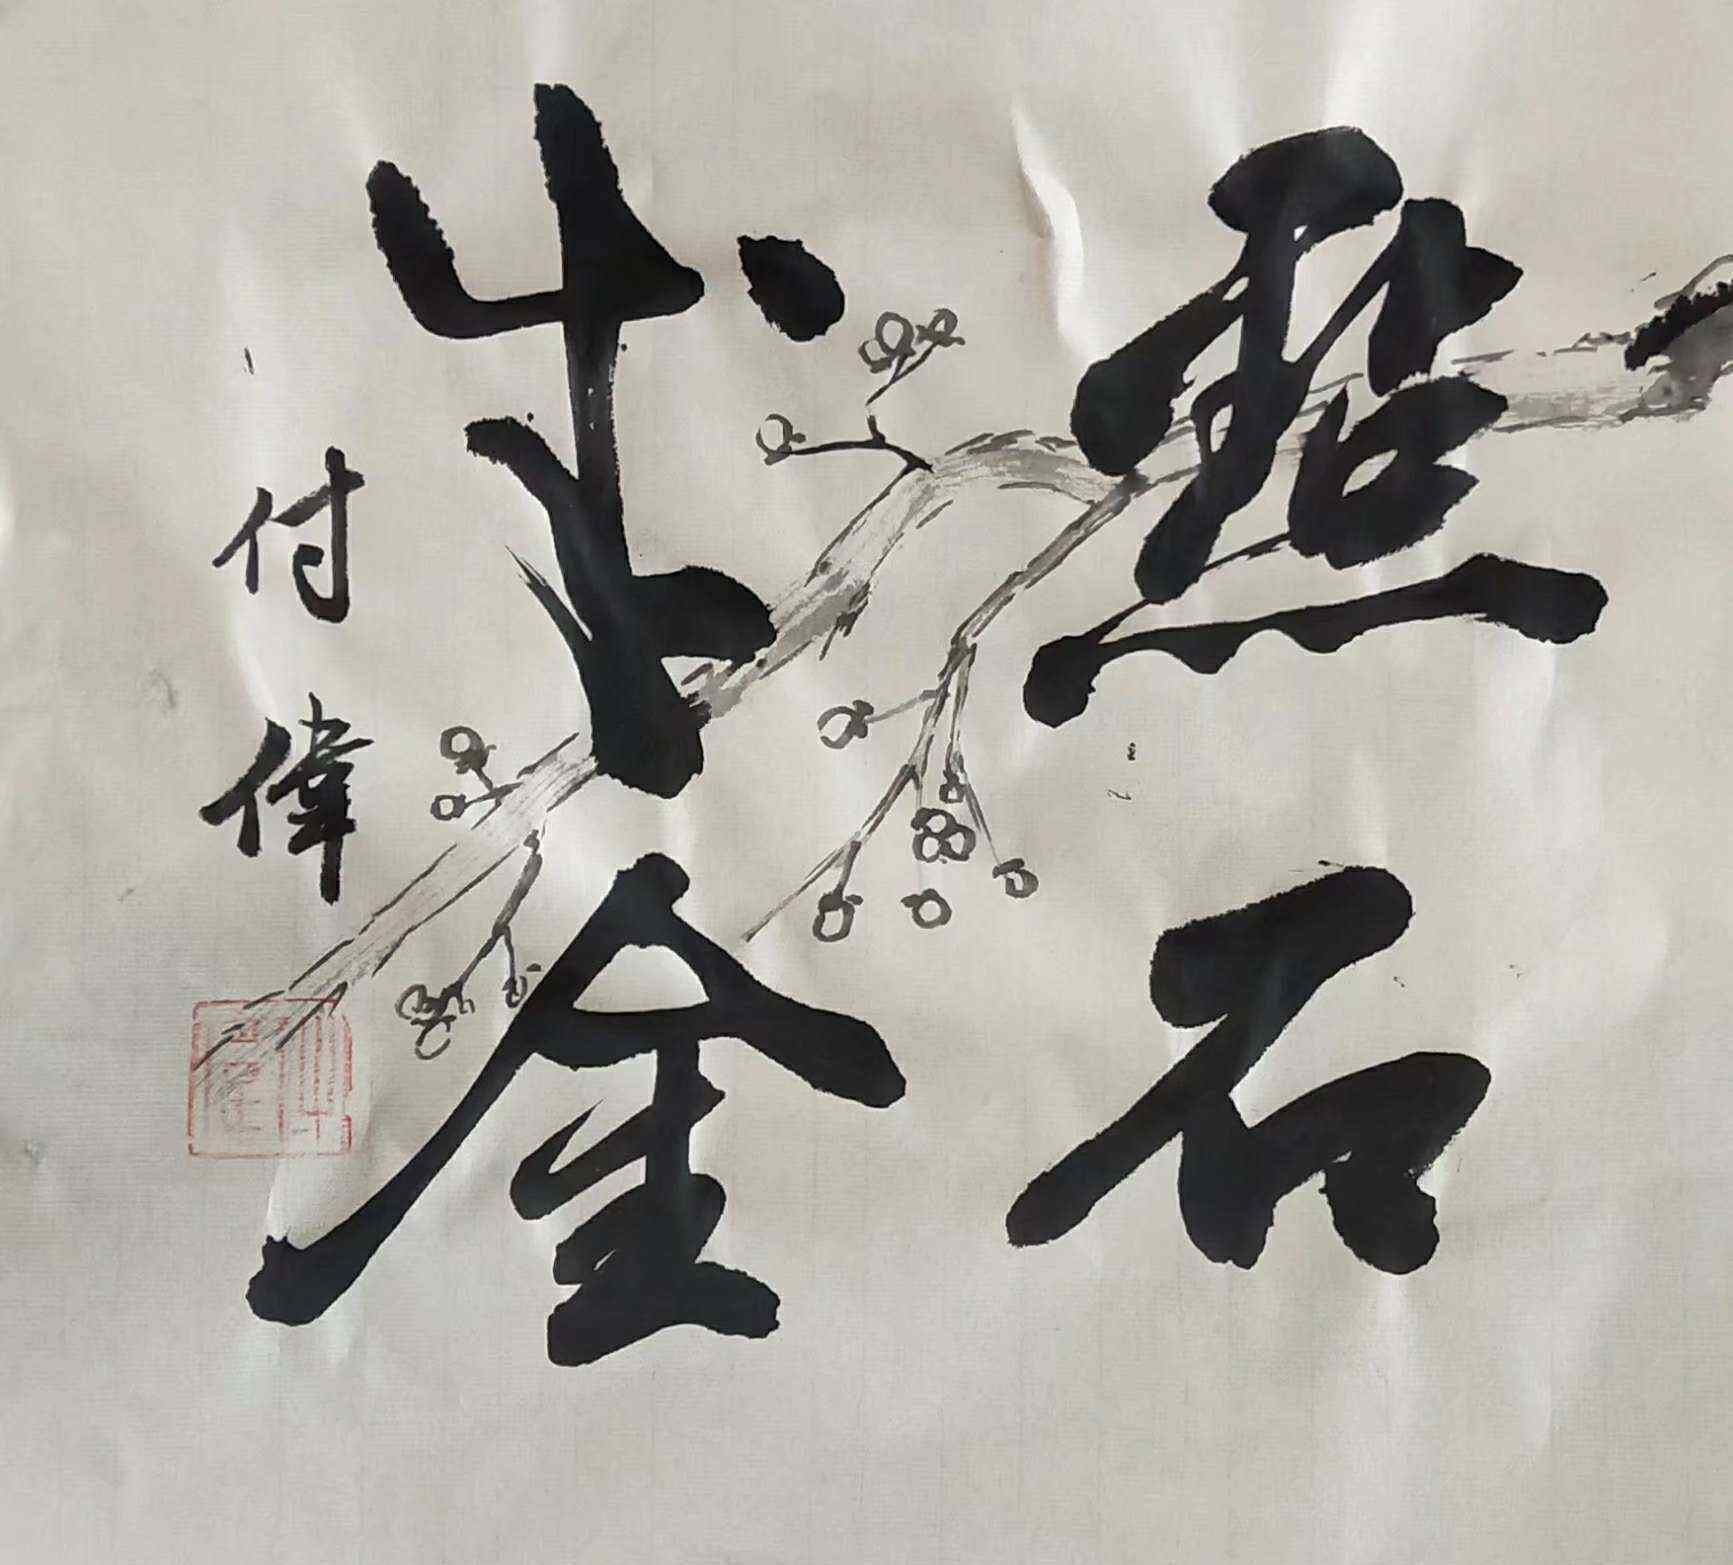 點石
成金
付偉